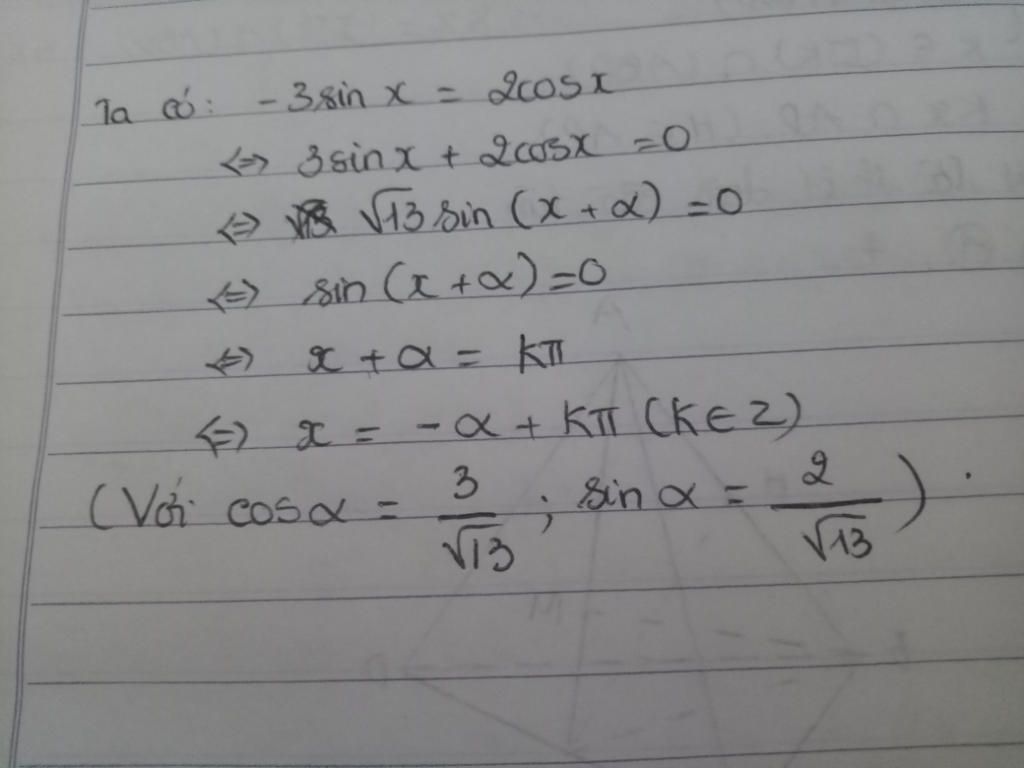 Ta có: -3sin x = 2cosx
<=> 3sinx + 2cosx = 0
<=> √13 sin (x + α) = 0
<=> sin (x + α) = 0
<=> x + α = kπ
<=> x = -α + kπ (k ∈ Z)
(Với cosα = 3/√13 ; sin α = 2/√13 ) .